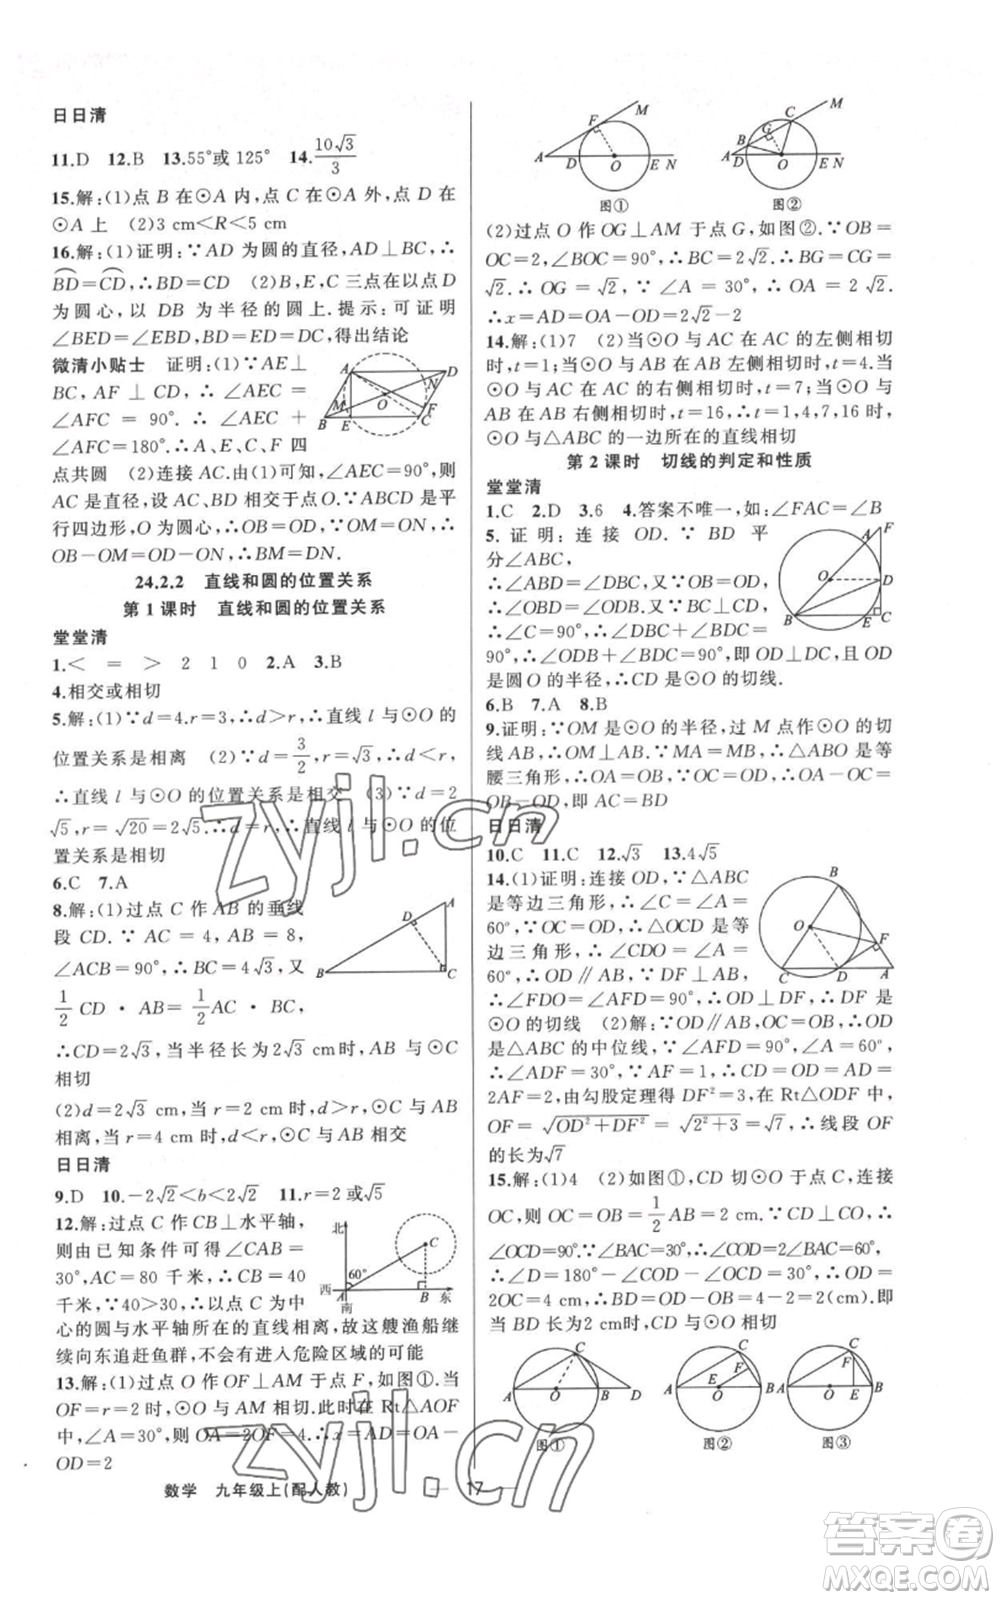 日日清
11.D 12.B 13.55°或 125° 14.10√3/3
15.解:(1)点 B 在⊙A 内,点 C 在⊙A 外,点 D 在
⊙A 上 (2)3 cm<R<5 cm
16.解:(1)证明:∵AD 为圆的直径,AD⊥BC,∴
BD=CD,∴BD=CD (2)B,E,C 三点在以点 D
为圆心,以 DB 为半径的圆上.提示:可证明
∠BED=∠EBD,BD=ED=DC,得出结论
微清小贴士 证明:(1)∵AE⊥
BC,AF⊥CD,∴∠AEC=
∠AFC=90°.∴∠AEC+
∠AFC=180°.∴A、E、C、F 四
点共圆 (2)连接 AC.由(1)可知,∠AEC=90°,则
AC 是直径,设 AC、BD 相交于点 O.∵ABCD 是平
行四边形,O 为圆心,∴OB=OD,∵OM=ON,∴
OB-OM=OD-ON,∴BM=DN.
24.2.2 直线和圆的位置关系
第 1 课时 直线和圆的位置关系
堂堂清
1.< = > 2 1 0 2.A 3.B
4.相交或相切
5.解:(1)∵d=4.r=3,∴d>r,∴直线 l 与⊙O 的
位置关系是相离 (2)∵d=3/2,r=√3,∴d<r,
∴直线 l 与⊙O 的位置关系是相交 (3)∵d=2
√5,r=√20=2√5.∴d=r,∴直线 l 与⊙O 的位
置关系是相切
6.C 7.A
8.解:(1)过点 C 作 AB 的垂线
段 CD.∵AC=4,AB=8,
∠ACB=90°,∴BC=4√3,又
1/2 CD·AB=1/2 AC·BC,
∴CD=2√3,当半径长为 2√3 cm时,AB 与⊙C
相切
(2)d=2√3 cm,当 r=2 cm 时,d>r,⊙C 与 AB
相离,当 r=4 cm 时,d<r,⊙C 与 AB 相交
日日清
9.D 10.-2√2<b<2√2 11.r=2 或√5
12.解:过点 C 作 CB⊥水平轴,
则由已知条件可得∠CAB=
30°,AC=80 千米,∴BC=40
千米,∵40>30,∴以点 C 为中
心的圆与水平轴所在的直线相离,故这艘渔船继
续向东追赶鱼群,不会有进入危险区域的可能
13.解:(1)过点 O 作 OF⊥AM 于点 F,如图①.当
OF=r=2 时,⊙O 与 AM 相切.此时在 Rt△AOF
中,∠A=30°,则 OA=2OF=4.∴x=AD=OA-
OD=2
F M A D O E N
图①
C M B G A D O E N
图②
(2)过点 O 作 OG⊥AM 于点 G,如图②.∵OB=
OC=2,∠BOC=90°,∴BC=2√2.∴BG=CG=
√2.∴OG=√2,∵∠A=30°,∴OA=2√2.
∴x=AD=OA-OD=2√2-2
14.解:(1)7 (2)当⊙O 与 AC 在 AC 的左侧相切
时,t=1;当⊙O 与 AB 在 AB 的左侧相切时,t=
4;当⊙O 与 AC 在 AC 的右侧相切时,t=7;当⊙O 与
AB 在 AB 右侧相切时,t=16,∴t=1,4,7,16 时,
⊙O 与△ABC 的一边所在的直线相切
第 2 课时 切线的判定和性质
堂堂清
1.C 2.D 3.6 4.答案不唯一,如:∠FAC=∠B
5.证明:连接 OD.∵BD 平
分∠ABC,
∴∠ABD=∠DBF,又∵OB=OD,
∴∠OBD=∠ODB,又∵
∠C=90°,∴∠DBC+∠BDC=
90°,∴∠ODB+∠BDC=90°,即 OD⊥DC,又 OD
是圆 O 的半径,∴CD=是⊙O 的切线.
6.B 7.A 8.B
9.证明:∵OM 是⊙O 的半径,过 M 点作⊙O 的切
线 AB,∴OM⊥AB,∵MA=MB,∴△ABO 是等
腰三角形,∴OA=OB,∵OC=OD,∴OA-OC=
OB-OD,即 AC=BD
日日清
10.C 11.C 12.√3 13.4√5
14.(1)证明:连接 OD,∵△ABC
是等边三角形,∴∠C=∠A=
60°,∵OC=OD,∴△OCD 是等
边三角形,∴∠CDO=∠A=
60°,∴OD∥AB,∵DF⊥AB,
∴∠FDO=∠AFD=90°,∴OD⊥DF,∴DF 是
⊙O 的切线 (2)解:∵OD∥AB,OC=OB,∴OD
是△ABC 的中位线,∵∠AFD=90°,∠A=60°,
∴∠ADF=30°,∵AF=1,∴CD=OD=AD=
2AF=2,由勾股定理得 DF²=3,在 Rt△ODF 中,
OF=√OD²+DF²=√2²+3=√7,∴线段 OF
的长为√7
15.解:(1)4 (2)如图①,CD 切⊙O 于点 C,连接
OC,则 OC=OB=1/2 AB=2 cm.∵CD⊥CO,∴
∠OCD=90°,∵∠BAC=30°,∴∠COD=2∠BAC=60°,
∴∠D=180°-∠COD-∠OCD=30°,∴OD=
2OC=4 cm,∴BD=OD-OB=4-2=2(cm),即
当 BD 长为 2 cm 时,CD 与⊙O 相切
图① 图② 图③
数学 九年级上(配人教) — 17 —
zyjl.cn
zyjl.cn
答案卷